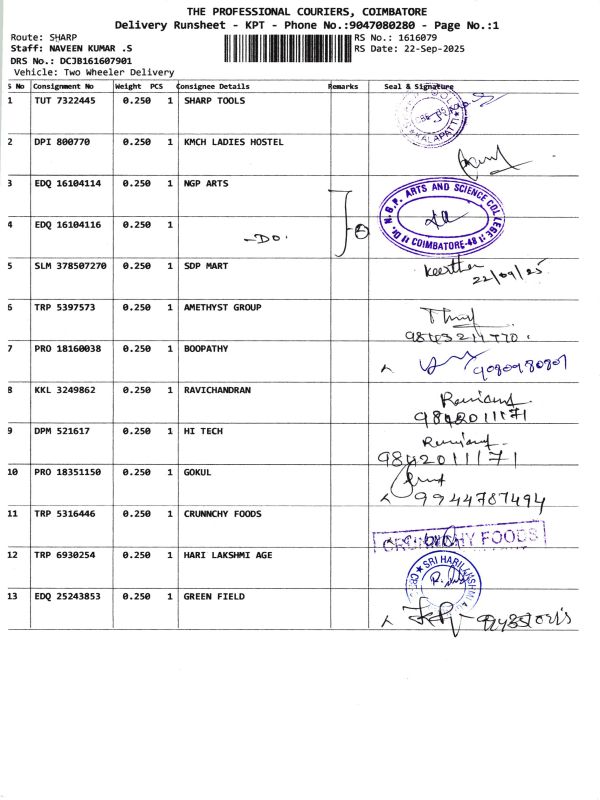 THE PROFESSIONAL COURIERS, COIMBATORE
Delivery Runsheet - KPT - Phone No.:9047080280 - Page No.:1
Route: SHARP
RS No.: 1616079
Staff: NAVEEN KUMAR .S
RS Date: 22-Sep-2025
DRS No.: DCJB161607901
Vehicle: Two Wheeler Delivery
S No Consignment No Weight PCS Consignee Details Remarks Seal & Signature
1 TUT 7322445 0.250 1 SHARP TOOLS
KALAPATTI
2 DPI 800770 0.250 1 KMCH LADIES HOSTEL
3 EDQ 16104114 0.250 1 NGP ARTS
Dr. N.G.P. ARTS AND SCIENCE COLLEGE
COIMBATORE-48
4 EDQ 16104116 0.250 1 -DO- 2
5 SLM 378507270 0.250 1 SDP MART
Keerthu
22/09/25
6 TRP 5397573 0.250 1 AMETHYST GROUP
7 PRO 18160038 0.250 1 BOOPATHY
8 KKL 3249862 0.250 1 RAVICHANDRAN
9842011171
9 DPM 521617 0.250 1 HI TECH
9842011171
10 PRO 18351150 0.250 1 GOKUL
9944787494
11 TRP 5316446 0.250 1 CRUNNCHY FOODS
CRUNNCHY FOODS
12 TRP 6930254 0.250 1 HARI LAKSHMI AGE
SRI HARI LAKSHMI
13 EDQ 25243853 0.250 1 GREEN FIELD